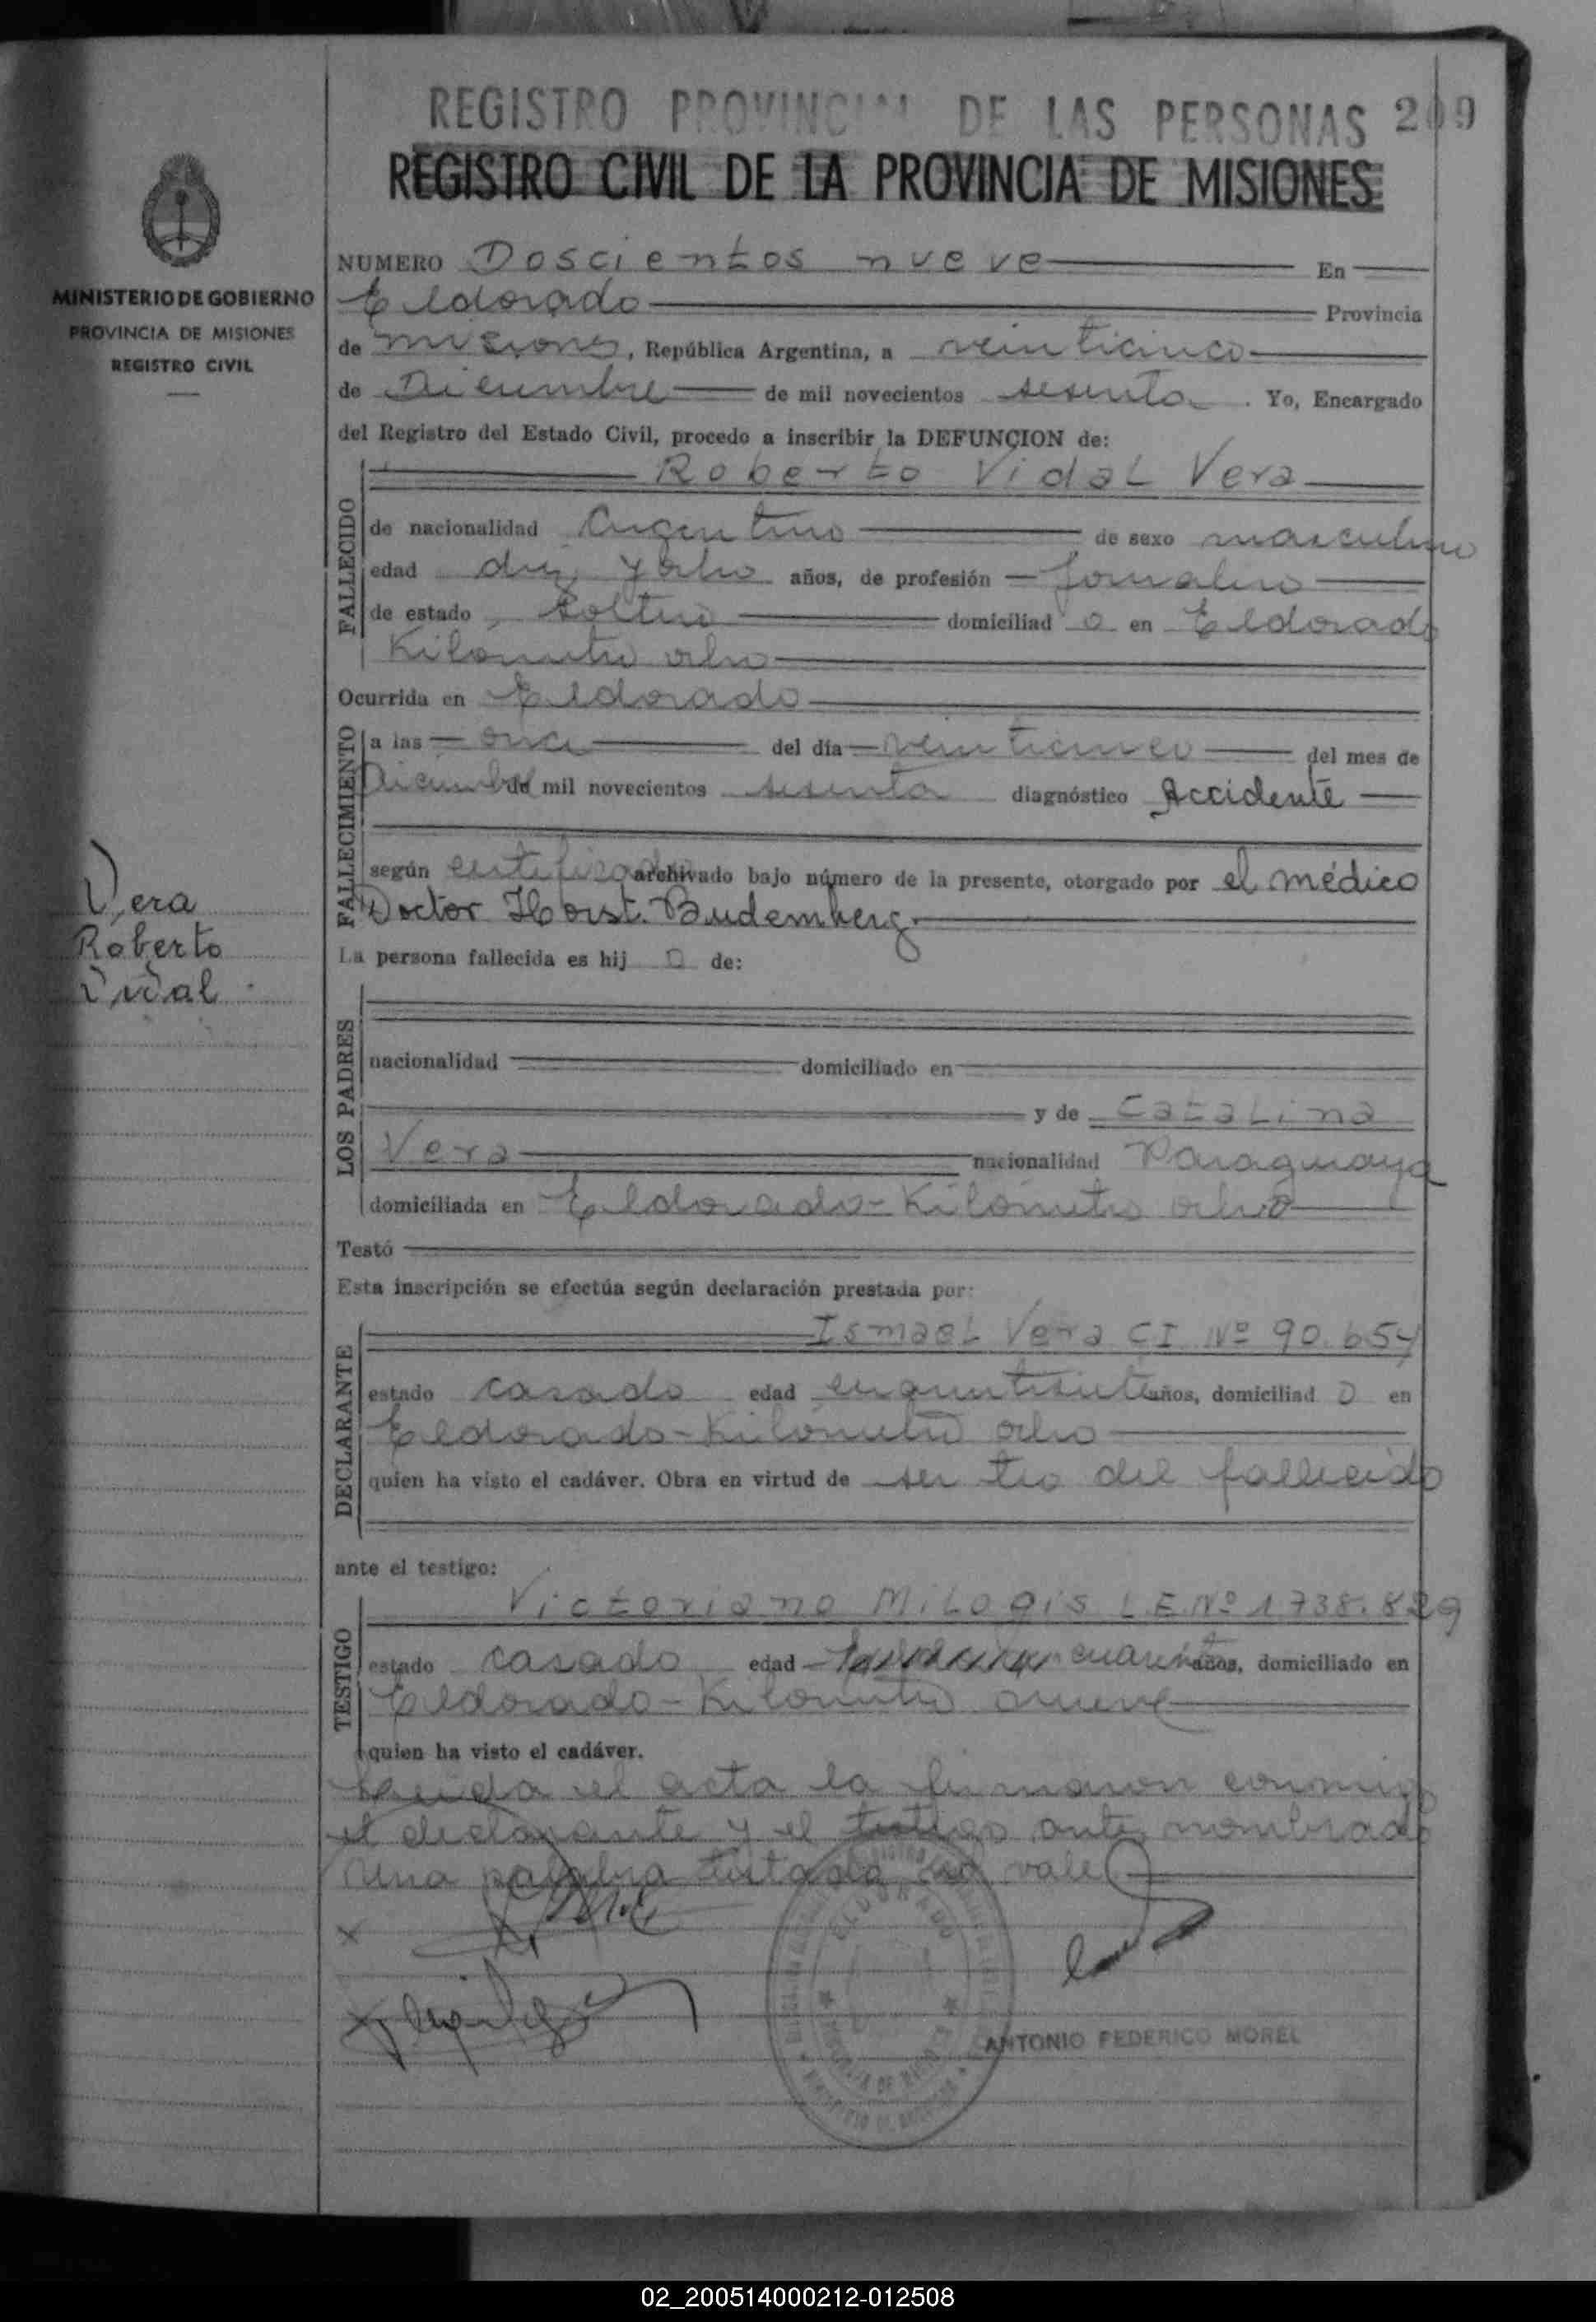 REGISTRO PROVINCIAL DE LAS PERSONAS 209
REGISTRO CIVIL DE LA PROVINCIA DE MISIONES
MINISTERIO DE GOBIERNO
PROVINCIA DE MISIONES
REGISTRO CIVIL
NUMERO Doscientos nueve En
Eldorado Provincia
de Misiones, República Argentina, a veinticinco
de Diciembre de mil novecientos sesenta. Yo, Encargado
del Registro del Estado Civil, procedo a inscribir la DEFUNCION de:
Roberto Vidal Vera
FALLECIDO
de nacionalidad Argentino de sexo masculino
edad diez y ocho años, de profesión Jornalero
de estado soltero domiciliado en Eldorado
Kilometro ocho
Ocurrida en Eldorado
FALLECIMIENTO
a las once del día veinticinco del mes de
Diciembre de mil novecientos sesenta diagnóstico Accidente
según certificado archivado bajo número de la presente, otorgado por el médico
Doctor Horst Budemberg
Vera
Roberto
Vidal
La persona fallecida es hijo de:
LOS PADRES
nacionalidad domiciliado en
y de Catalina
Vera nacionalidad Paraguaya
domiciliada en Eldorado - Kilómetro ocho
Testó
Esta inscripción se efectúa según declaración prestada por:
DECLARANTE
Ismael Vera CI Nº 90.654
estado casado edad cincuentisiete años, domiciliado en
Eldorado - Kilómetro ocho
quien ha visto el cadáver. Obra en virtud de ser tio del fallecido
ante el testigo:
TESTIGO
Victoriano Milogis L.E.Nº 1738.829
estado casado edad cuarenta años, domiciliado en
Eldorado - Kilometro nueve
quien ha visto el cadáver.
Leida el acta la firmaron conmigo
el declarante y el testigo ante nombrado
una palabra testada no vale
ELDORADO
ANTONIO FEDERICO MOREL
02_200514000212-012508